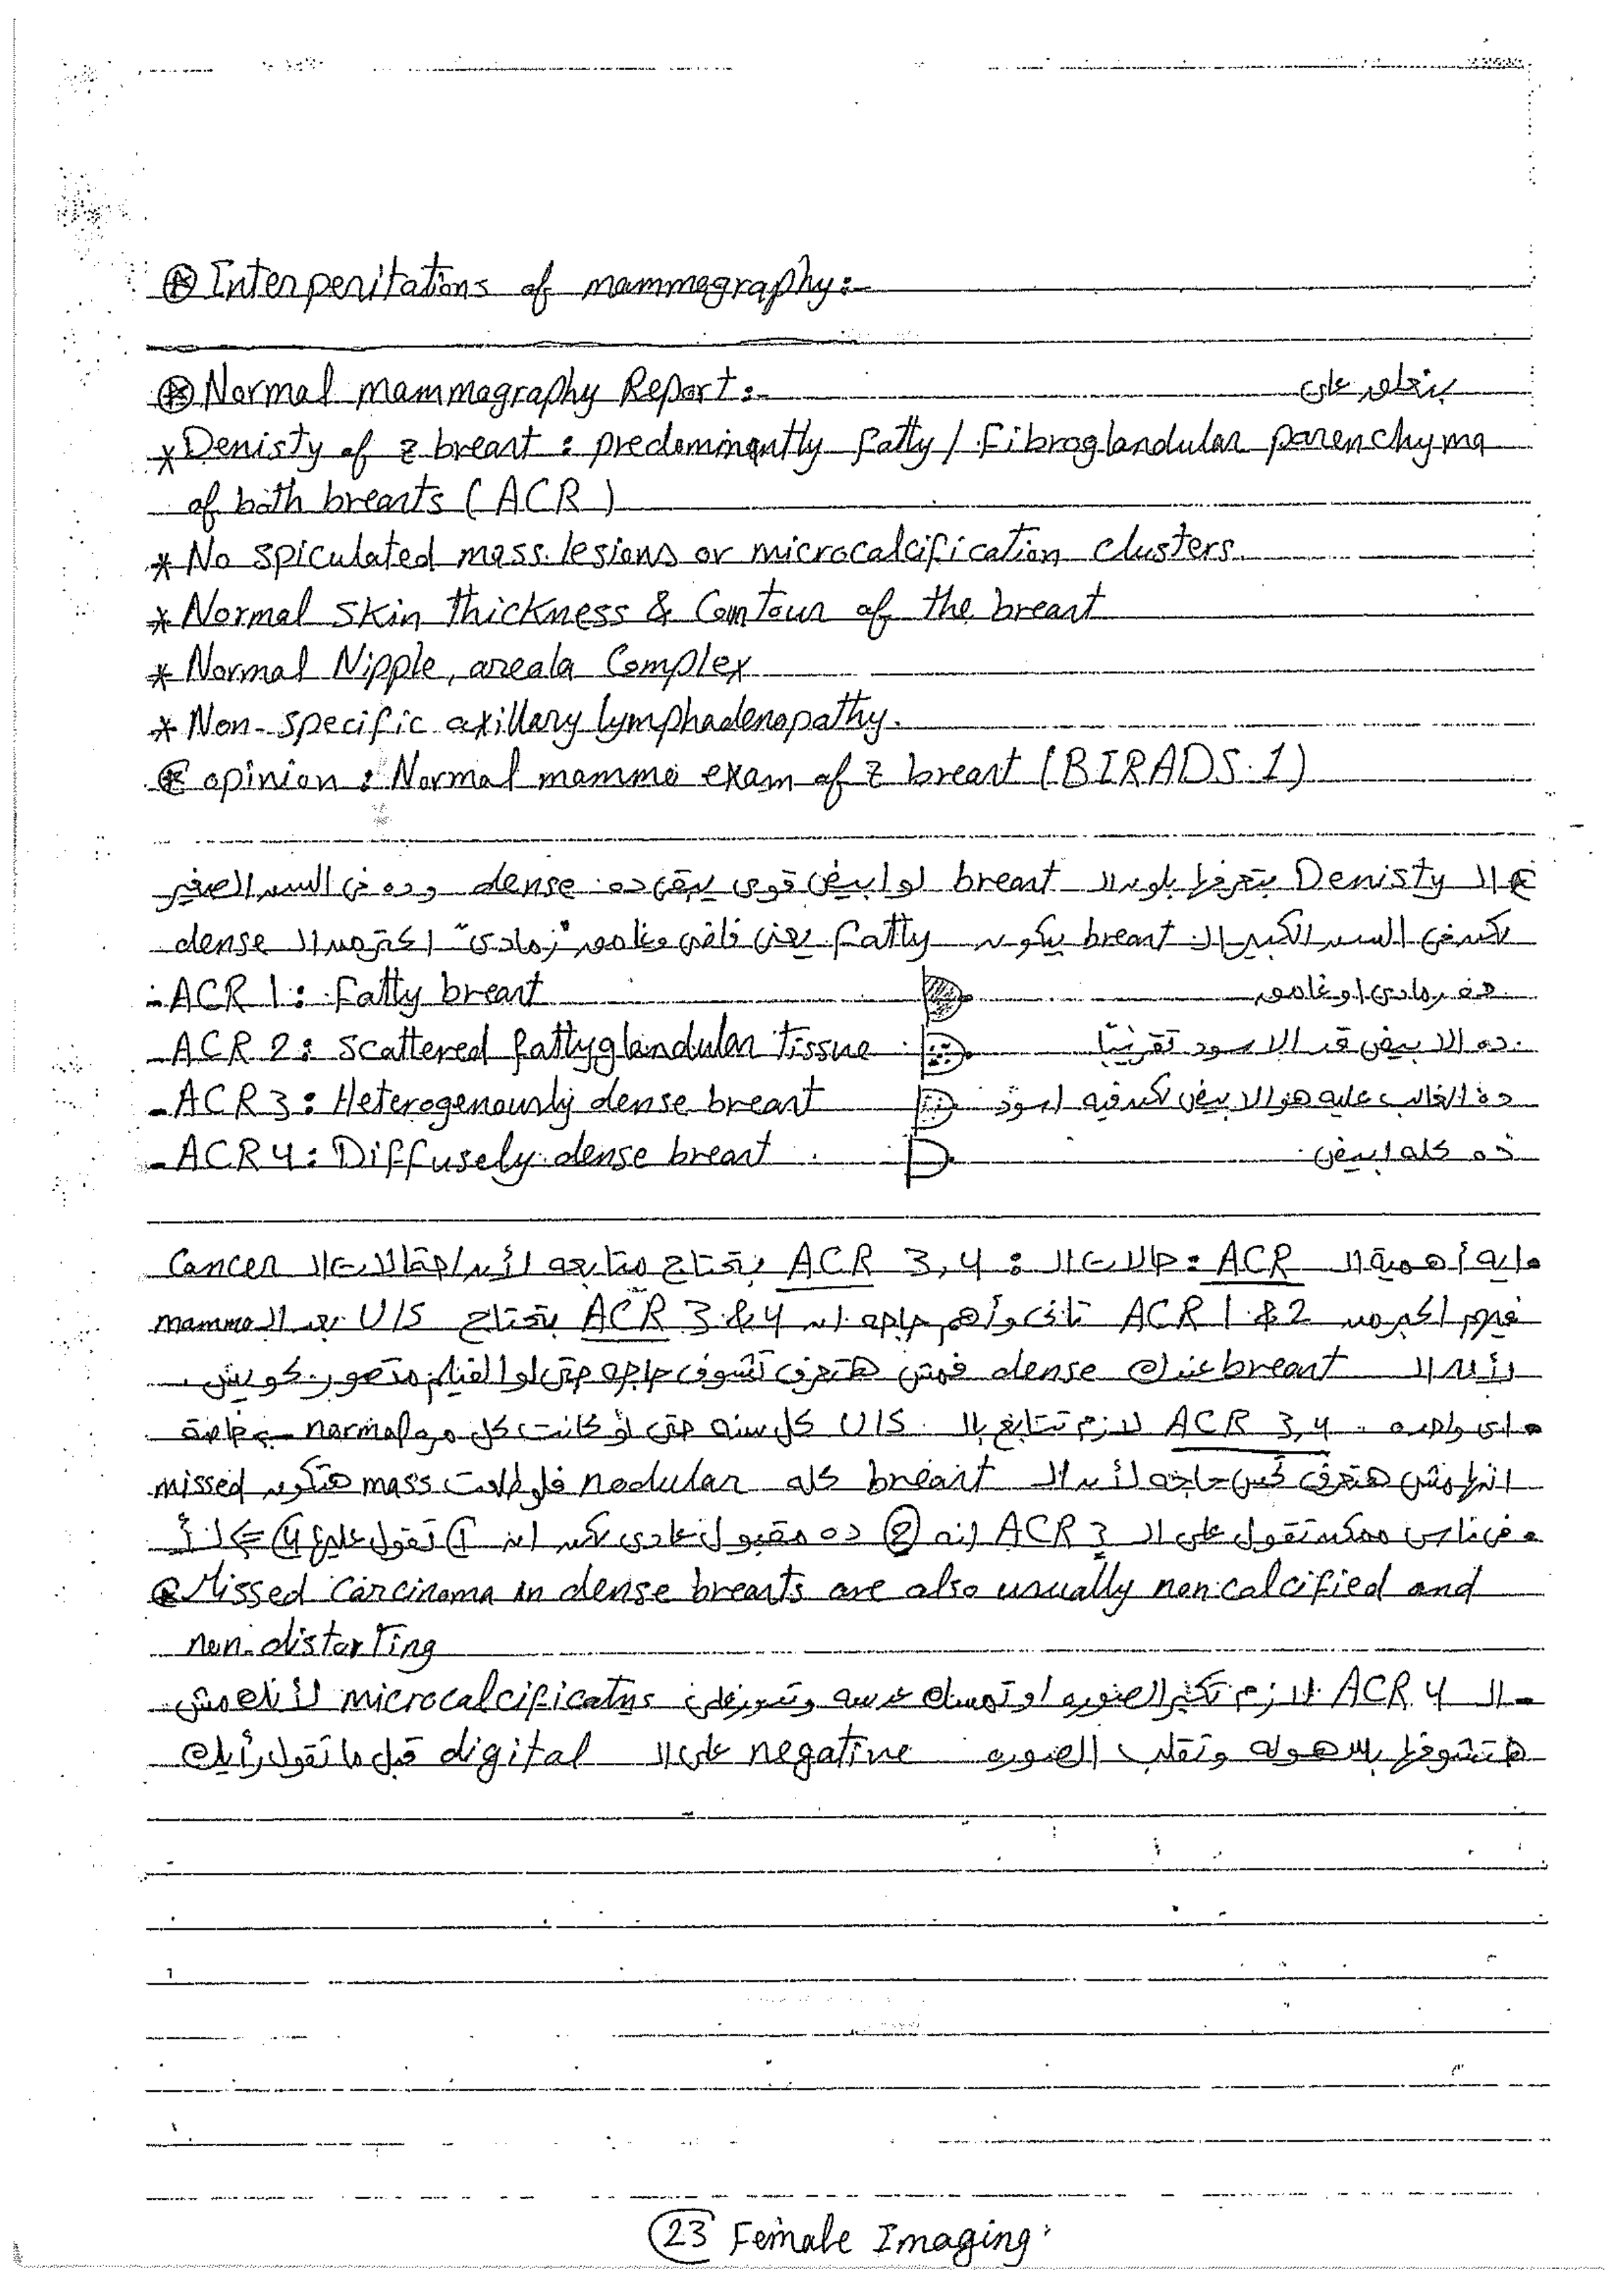 ⊛ Interperitations of mammography:-
⊛ Normal mammography Report:- بنعلق على
* Denisty of z breast : predominantly fatty / Fibroglandular parenchyma
of both breasts ( ACR )
* No spiculated mass lesions or microcalcification clusters.
* Normal skin thickness & Contour of the breast
* Normal Nipple, areala Complex
* Non-specific axillary lymphadenopathy.
⊛ opinion : Normal mammo exam of z breast (BIRADS 1)
⊛ الـ Denisty بتعرفها بلون الـ breast لو ابيض قوى يبقى ده dense وده فى السن الصغير
لكن فى السن الكبير الـ breast بيكون fatty يعنى فاضى وغامق "رمادى" اكتر من الـ dense
- ACR 1 : Fatty breast ده رمادى او غامق
- ACR 2 : Scattered fattyglandular Tissue ده الابيض قد الاسود تقريبًا
- ACR 3 : Heterogenously dense breast ده الغالب عليه هو الابيض لكن فيه اسود
- ACR 4 : Diffusely dense breast ده كله ابيض
- ايه أهمية الـ ACR : حالات الـ ACR 3,4 : يحتاج متابعه لأن احتمالات الـ Cancer
فيهم اكبر من ACR 1 & 2 تانى وأهم حاجه ان ACR 3 & 4 يحتاج U/S بعد الـ mammo
لأن الـ breast عندك dense فمش هتعرف تشوف حاجه حتى لو الفيلم متصور كويس
- اى واحده ACR 3,4 لازم تتابع بالـ U/S كل سنه حتى لو كانت كل مره normal خاصة
انها مش هتعرف تحس حاجه لأن الـ breast كله nodular فلو طلعت mass هتكون missed
- فى ناس ممكن تقول على الـ ACR 3 إنه ② ده مقبول عادى لكن ان ① تقول عليها ④ ⇐ لأ
⊛ Missed Carcinoma in dense breasts are also usually non calcified and
non-distorting
- الـ ACR 4 لازم تكبر الصوره او تمسك عدسه وتدور على microcalcificatns لأنك مش
هتشوفها بسهوله وتقلب الصوره negative على الـ digital قبل ما تقول رأيك
23 Female Imaging